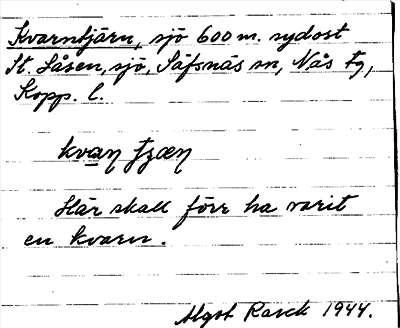 Kvarntjärn, sjö 600 m. sydost
St. Låsen, sjö, Säfsnäs sn, Nås tg,
Kopp. l.
Här skall förr ha varit
en kvarn.
Algot Rasck 1944.